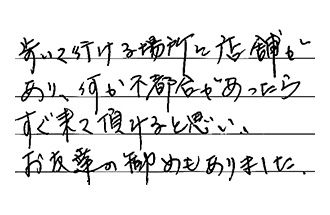 歩いて行ける場所に店舗が
あり、何か不都合があったら
すぐ来て頂けると思い、
お友達の勧めもありました.